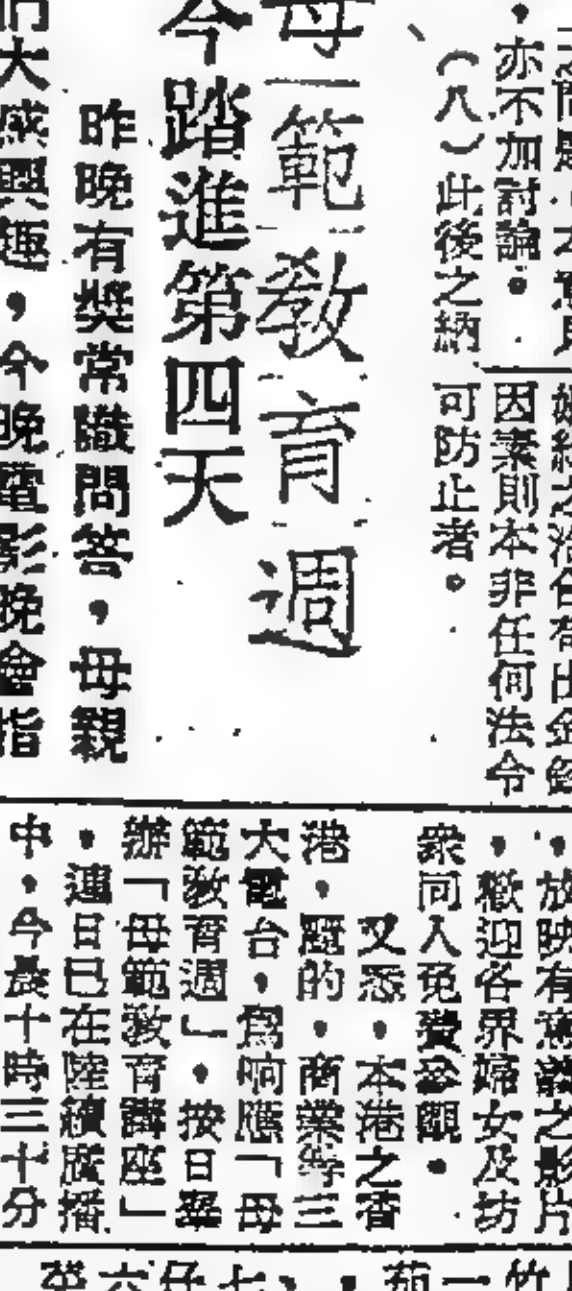 亦不加討論。
(八)此後之納
因素則本非任何法令
可防止者。
母範教育週
今踏進第四天
昨晚有獎常識問答,母親
大感興趣,今晚電影晚會指
放映有意義之影片
,歡迎各界婦女及坊
衆同人免費參觀。
又悉,本港之香
港,麗的,商業等三
大電台,爲响應「母
範教育週」,按日舉
辦「母範教育講座」
,連日已在陸續廣播
中,今晨十時三十分